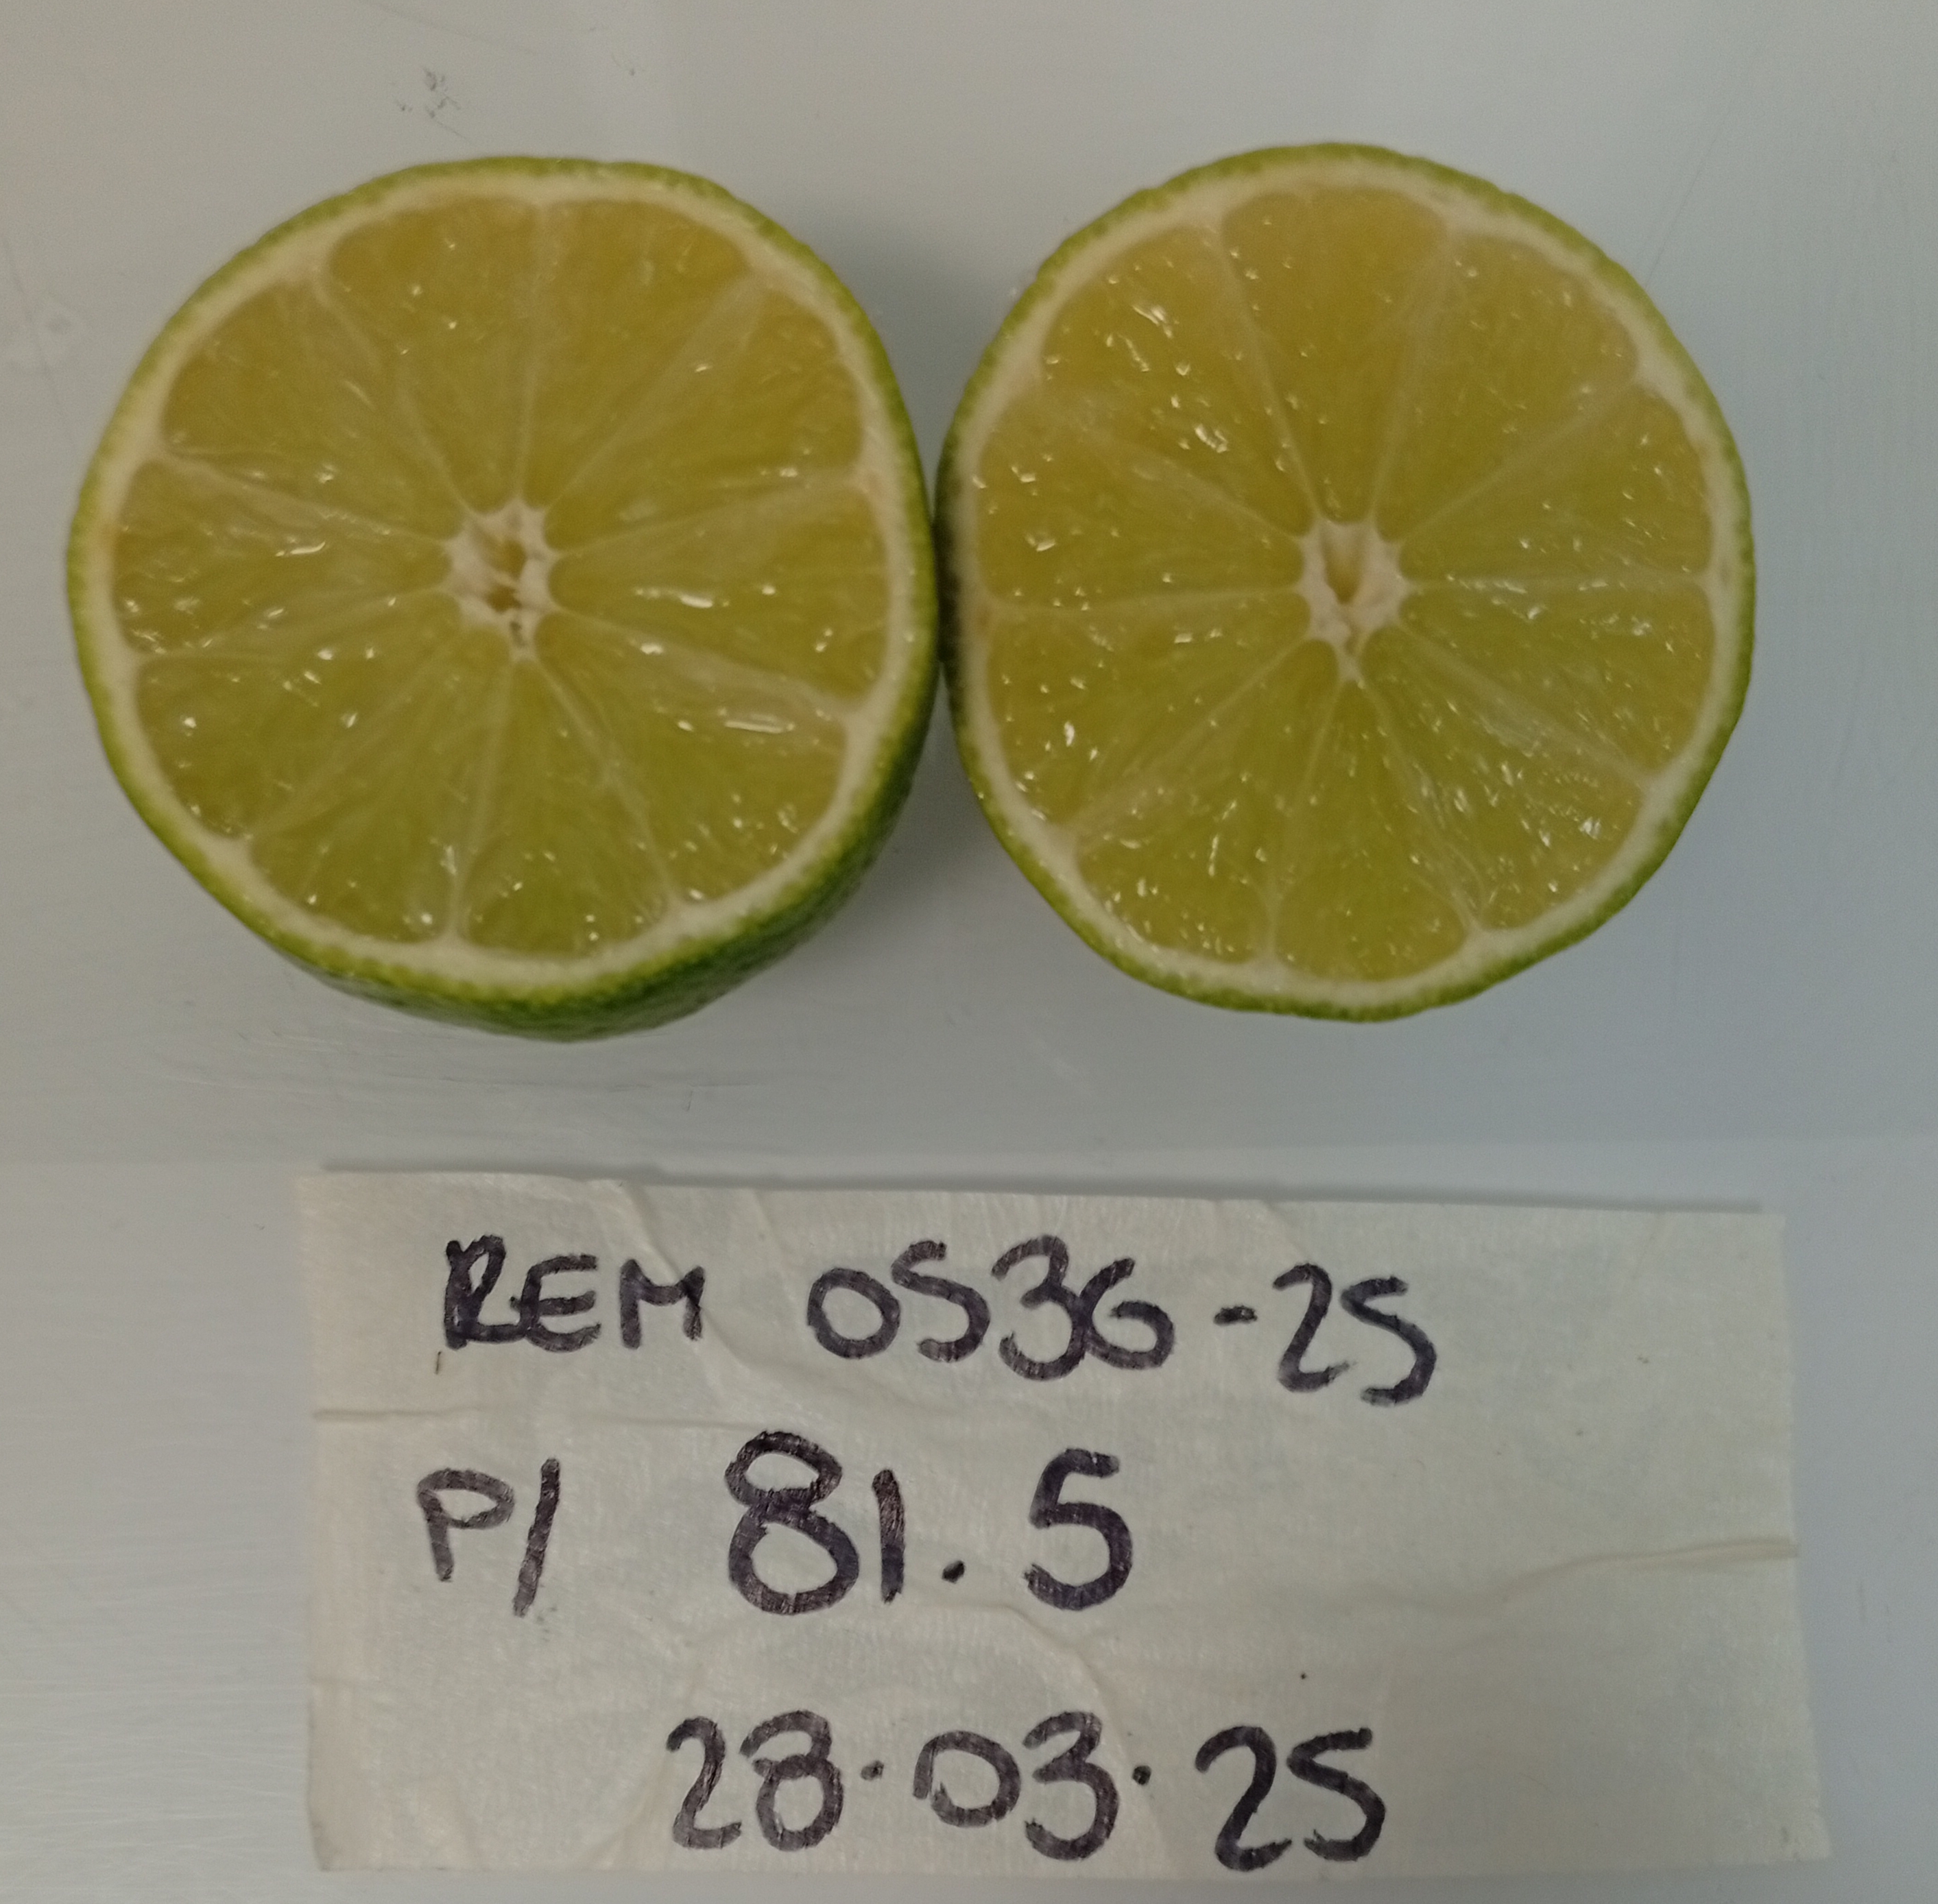 REM 0536-25
P/ 81.5
28.03.25